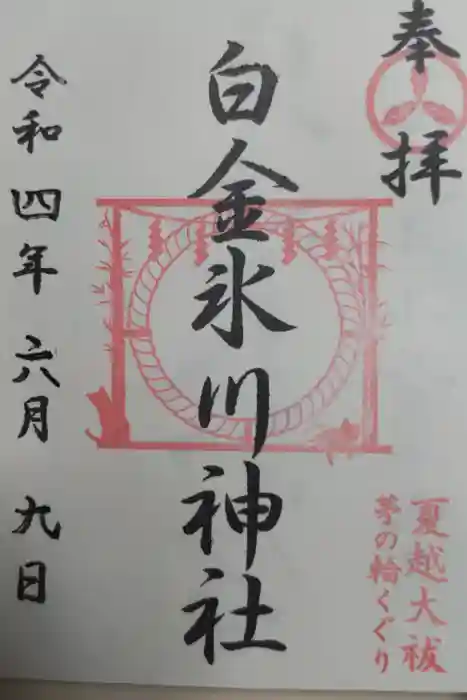 奉拝
白金氷川神社
夏越大祓
茅の輪くぐり
令和四年六月九日